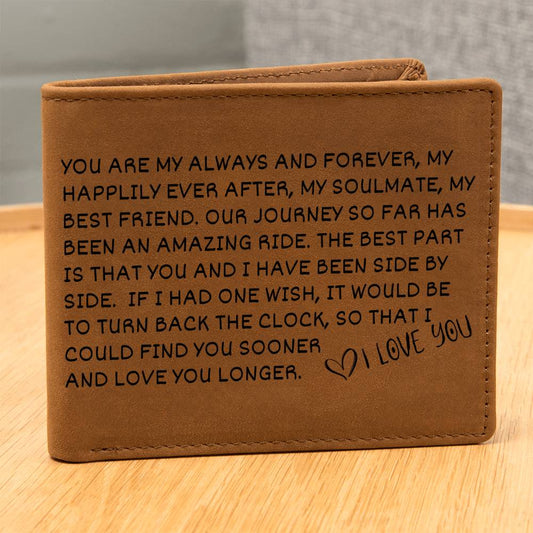 YOU ARE MY ALWAYS AND FOREVER, MY
HAPPLILY EVER AFTER, MY SOULMATE, MY
BEST FRIEND. OUR JOURNEY SO FAR HAS
BEEN AN AMAZING RIDE. THE BEST PART
IS THAT YOU AND I HAVE BEEN SIDE BY
SIDE. IF I HAD ONE WISH, IT WOULD BE
TO TURN BACK THE CLOCK, SO THAT I
COULD FIND YOU SOONER
AND LOVE YOU LONGER.
I LOVE YOU